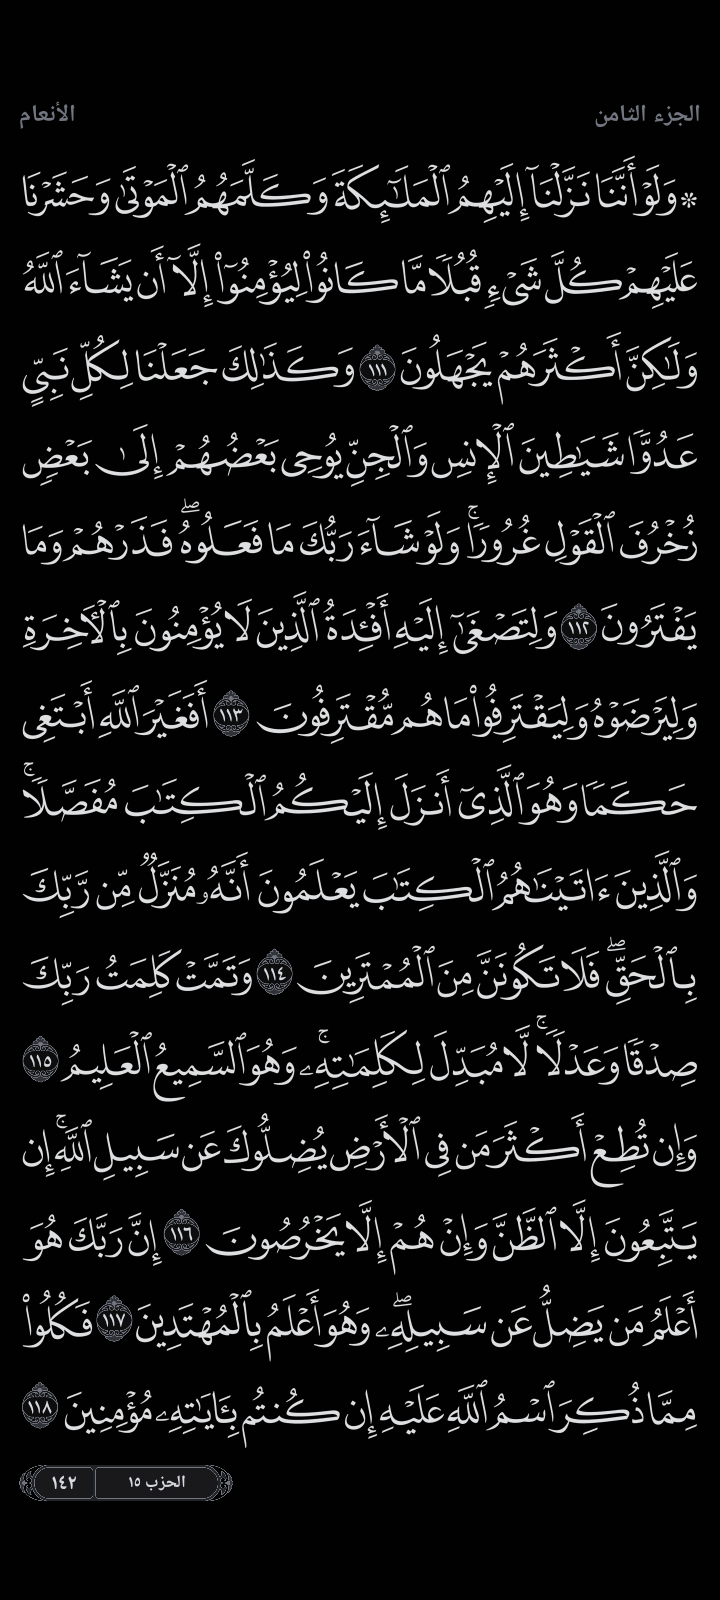 الجزء الثامن
الأنعام
۞ وَلَوْ أَنَّنَا نَزَّلْنَآ إِلَيْهِمُ ٱلْمَلَـٰٓئِكَةَ وَكَلَّمَهُمُ ٱلْمَوْتَىٰ وَحَشَرْنَا
عَلَيْهِمْ كُلَّ شَىْءٍ قُبُلًا مَّا كَانُوا۟ لِيُؤْمِنُوٓا۟ إِلَّآ أَن يَشَآءَ ٱللَّهُ
وَلَـٰكِنَّ أَكْثَرَهُمْ يَجْهَلُونَ ١١١ وَكَذَٰلِكَ جَعَلْنَا لِكُلِّ نَبِىٍّ
عَدُوًّا شَيَـٰطِينَ ٱلْإِنسِ وَٱلْجِنِّ يُوحِى بَعْضُهُمْ إِلَىٰ بَعْضٍ
زُخْرُفَ ٱلْقَوْلِ غُرُورًا ۚ وَلَوْ شَآءَ رَبُّكَ مَا فَعَلُوهُ ۖ فَذَرْهُمْ وَمَا
يَفْتَرُونَ ١١٢ وَلِتَصْغَىٰٓ إِلَيْهِ أَفْـِٔدَةُ ٱلَّذِينَ لَا يُؤْمِنُونَ بِٱلْـَٔاخِرَةِ
وَلِيَرْضَوْهُ وَلِيَقْتَرِفُوا۟ مَا هُم مُّقْتَرِفُونَ ١١٣ أَفَغَيْرَ ٱللَّهِ أَبْتَغِى
حَكَمًا وَهُوَ ٱلَّذِىٓ أَنزَلَ إِلَيْكُمُ ٱلْكِتَـٰبَ مُفَصَّلًا ۚ
وَٱلَّذِينَ ءَاتَيْنَـٰهُمُ ٱلْكِتَـٰبَ يَعْلَمُونَ أَنَّهُۥ مُنَزَّلٌ مِّن رَّبِّكَ
بِٱلْحَقِّ ۖ فَلَا تَكُونَنَّ مِنَ ٱلْمُمْتَرِينَ ١١٤ وَتَمَّتْ كَلِمَتُ رَبِّكَ
صِدْقًا وَعَدْلًا ۚ لَّا مُبَدِّلَ لِكَلِمَـٰتِهِۦ ۚ وَهُوَ ٱلسَّمِيعُ ٱلْعَلِيمُ ١١٥
وَإِن تُطِعْ أَكْثَرَ مَن فِى ٱلْأَرْضِ يُضِلُّوكَ عَن سَبِيلِ ٱللَّهِ ۚ إِن
يَتَّبِعُونَ إِلَّا ٱلظَّنَّ وَإِنْ هُمْ إِلَّا يَخْرُصُونَ ١١٦ إِنَّ رَبَّكَ هُوَ
أَعْلَمُ مَن يَضِلُّ عَن سَبِيلِهِۦ ۖ وَهُوَ أَعْلَمُ بِٱلْمُهْتَدِينَ ١١٧ فَكُلُوا۟
مِمَّا ذُكِرَ ٱسْمُ ٱللَّهِ عَلَيْهِ إِن كُنتُم بِـَٔايَـٰتِهِۦ مُؤْمِنِينَ ١١٨
الحزب ١٥ ١٤٢